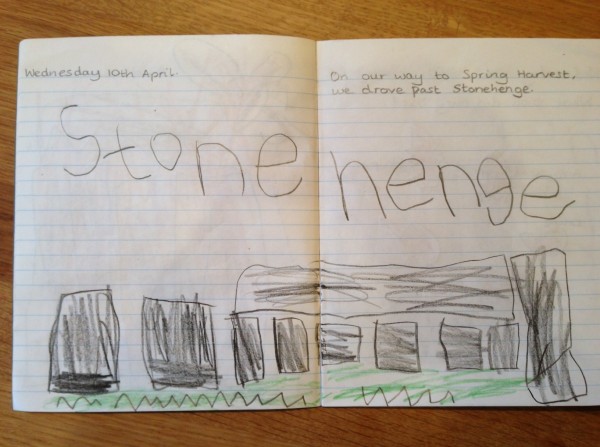 Wednesday 10th April.
On our way to Spring Harvest,
we drove past Stonehenge.
Stone henge